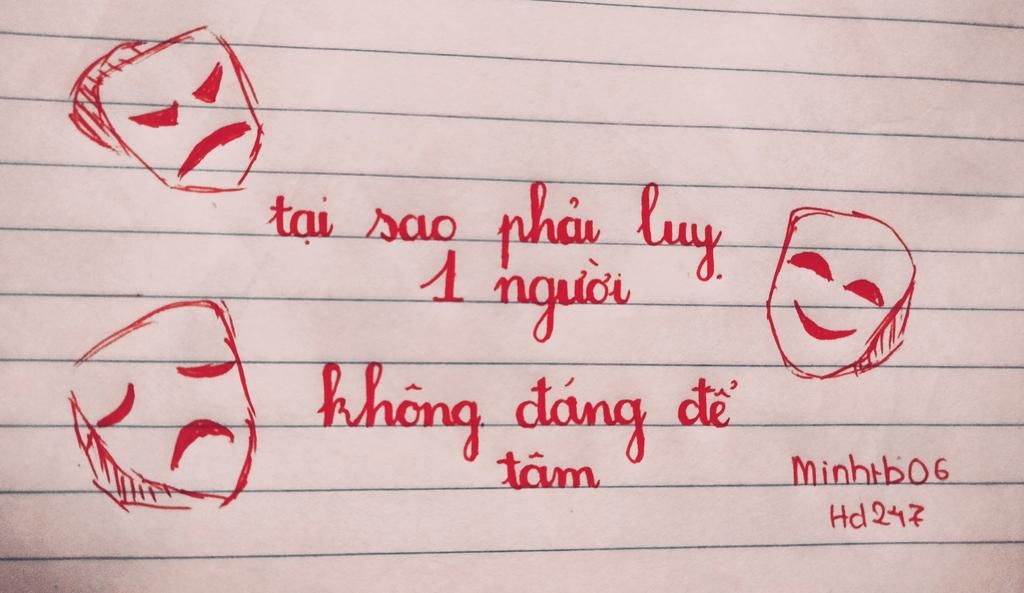 tại sao phải luỵ
1 người
không đáng để
tâm
Minhtb06
Hd247